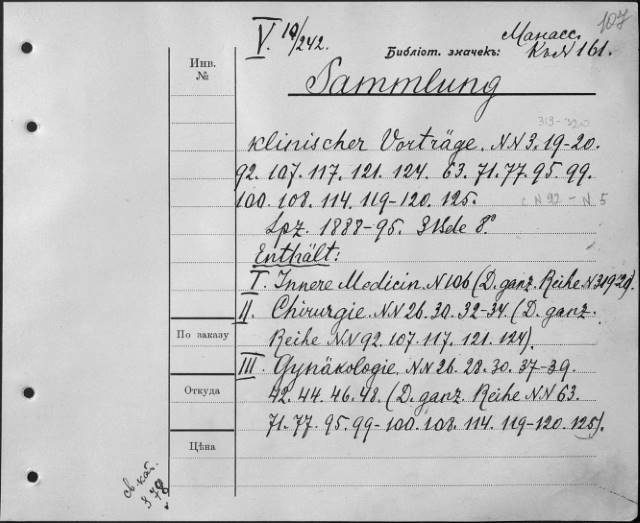 107
V. 10/242.
Библіот. значекъ:
Манасс.
Къ N 161.
Инв.
№
Sammlung
klinischer Vorträge. NN 3. 19-20.
92. 107. 117. 121. 124. 63. 71. 77. 95. 99.
100. 108. 114. 119-120. 125.
Lpz. 1888-95. 3 Bde 8°
Enthält:
I. Innere Medicin. N 106 (D. ganz. Reihe N 319-20).
II. Chirurgie. NN 26. 30. 32-34. (D. ganz.
Reihe NN 92. 107. 117. 121. 124).
III. Gynäkologie. NN 26. 28. 30. 37-39.
42. 44. 46. 48. (D. ganz. Reihe NN 63.
71. 77. 95. 99-100. 108. 114. 119-120. 125).
По заказу
Откуда
Цѣна
св. кат.
378